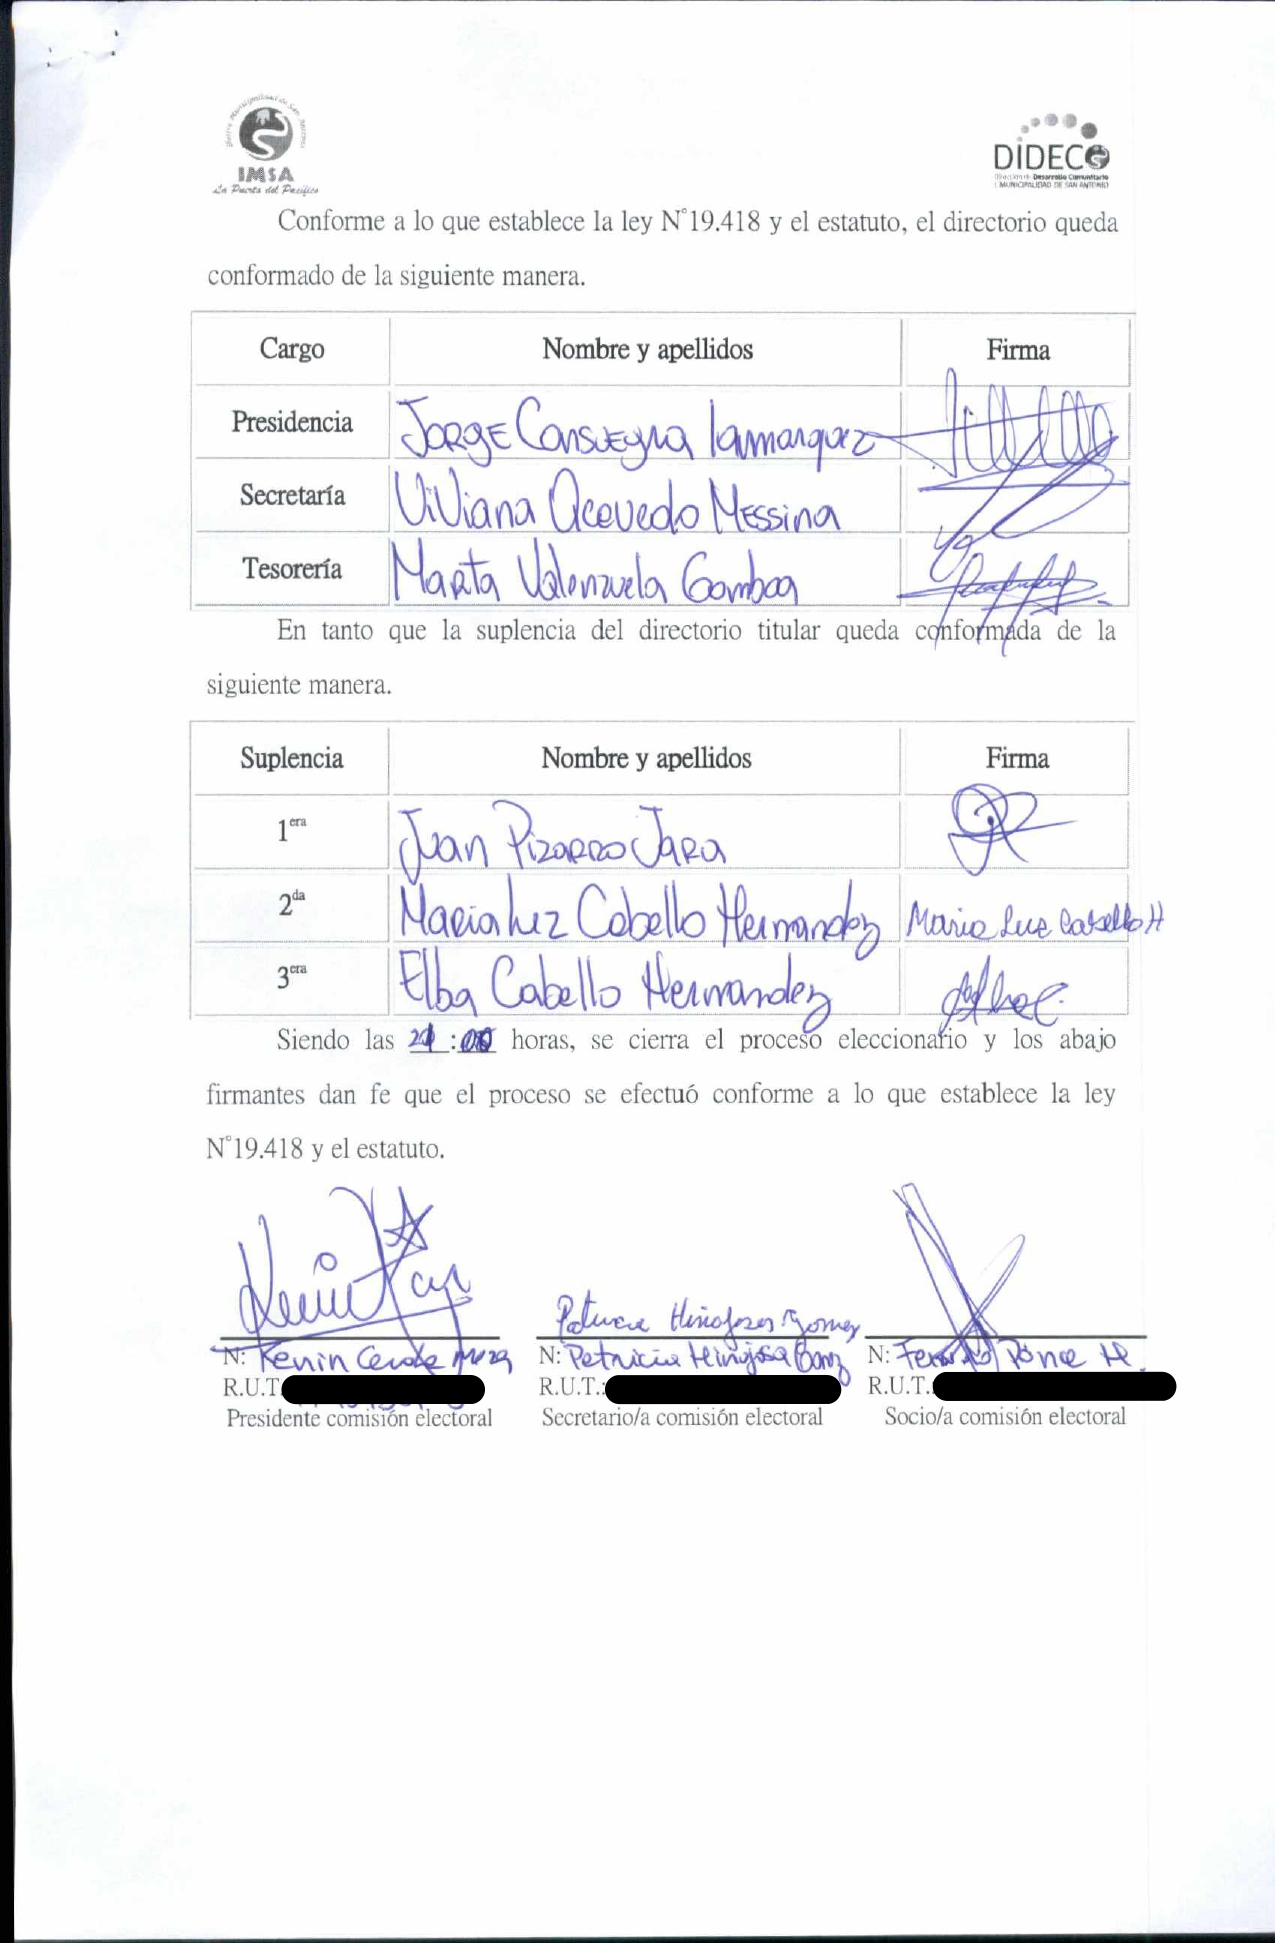 Ilustre Municipalidad de San Antonio
IMSA
La Puerta del Pacífico
DIDECO
Dirección de Desarrollo Comunitario
I. MUNICIPALIDAD DE SAN ANTONIO
Conforme a lo que establece la ley N°19.418 y el estatuto, el directorio queda
conformado de la siguiente manera.
Cargo Nombre y apellidos Firma
Presidencia Jorge Consuegra Lamarquez
Secretaría Viviana Acevedo Messina
Tesorería Marta Valenzuela Gamboa
En tanto que la suplencia del directorio titular queda conformada de la
siguiente manera.
Suplencia Nombre y apellidos Firma
1era Juan Pizarro Jara
2da Maria Luz Cabello Hernandez Maria Luz Cabello H
3era Elba Cabello Hernandez
Siendo las : horas, se cierra el proceso eleccionario y los abajo
firmantes dan fe que el proceso se efectuó conforme a lo que establece la ley
N°19.418 y el estatuto.
Patricia Hinojosa Gomez
N: Kenin N: Patricia Hinojosa Gomez N: Ponce H.
R.U.T. R.U.T.: R.U.T.:
Presidente comisión electoral Secretario/a comisión electoral Socio/a comisión electoral